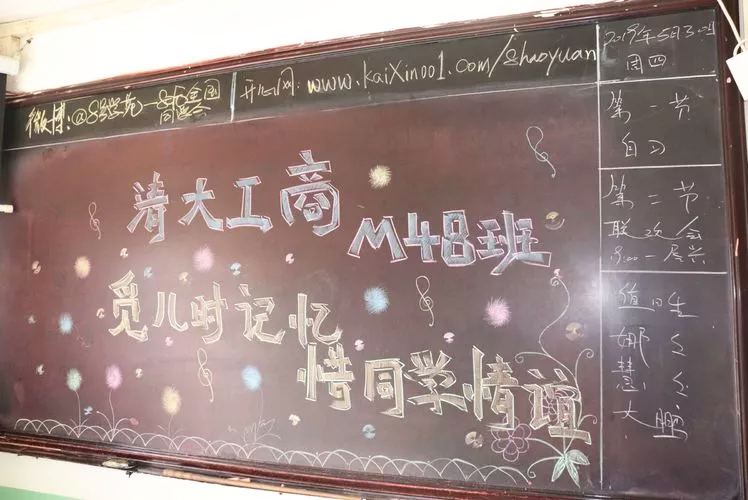 微博:@8号学苑—8代全国同学会
开心网: www.kaixin001.com/8haoyuan
2019年5月30日
周四
第一节
自习
第二节
联欢会
清大工商
M48班
觅儿时记忆
惜同学情谊
值日生
娜々
慧々
大脸